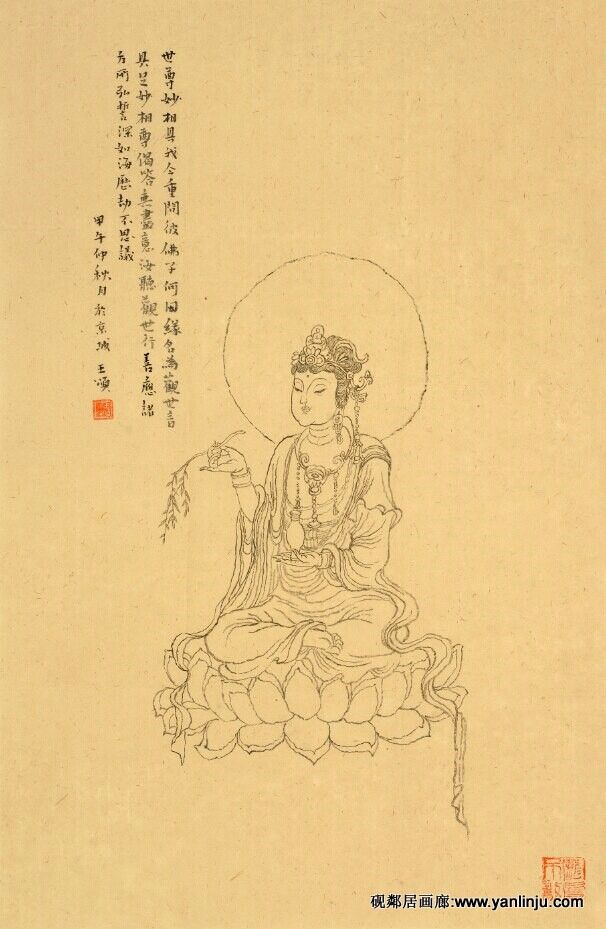 世尊妙相具我今重問彼佛子何因緣名為觀世音
具足妙相尊偈答無盡意汝聽觀世行善應諸
方所弘誓深如海歷劫不思議
甲午仲秋月於京城王頌
砚鄰居画廊:www.yanlinju.com